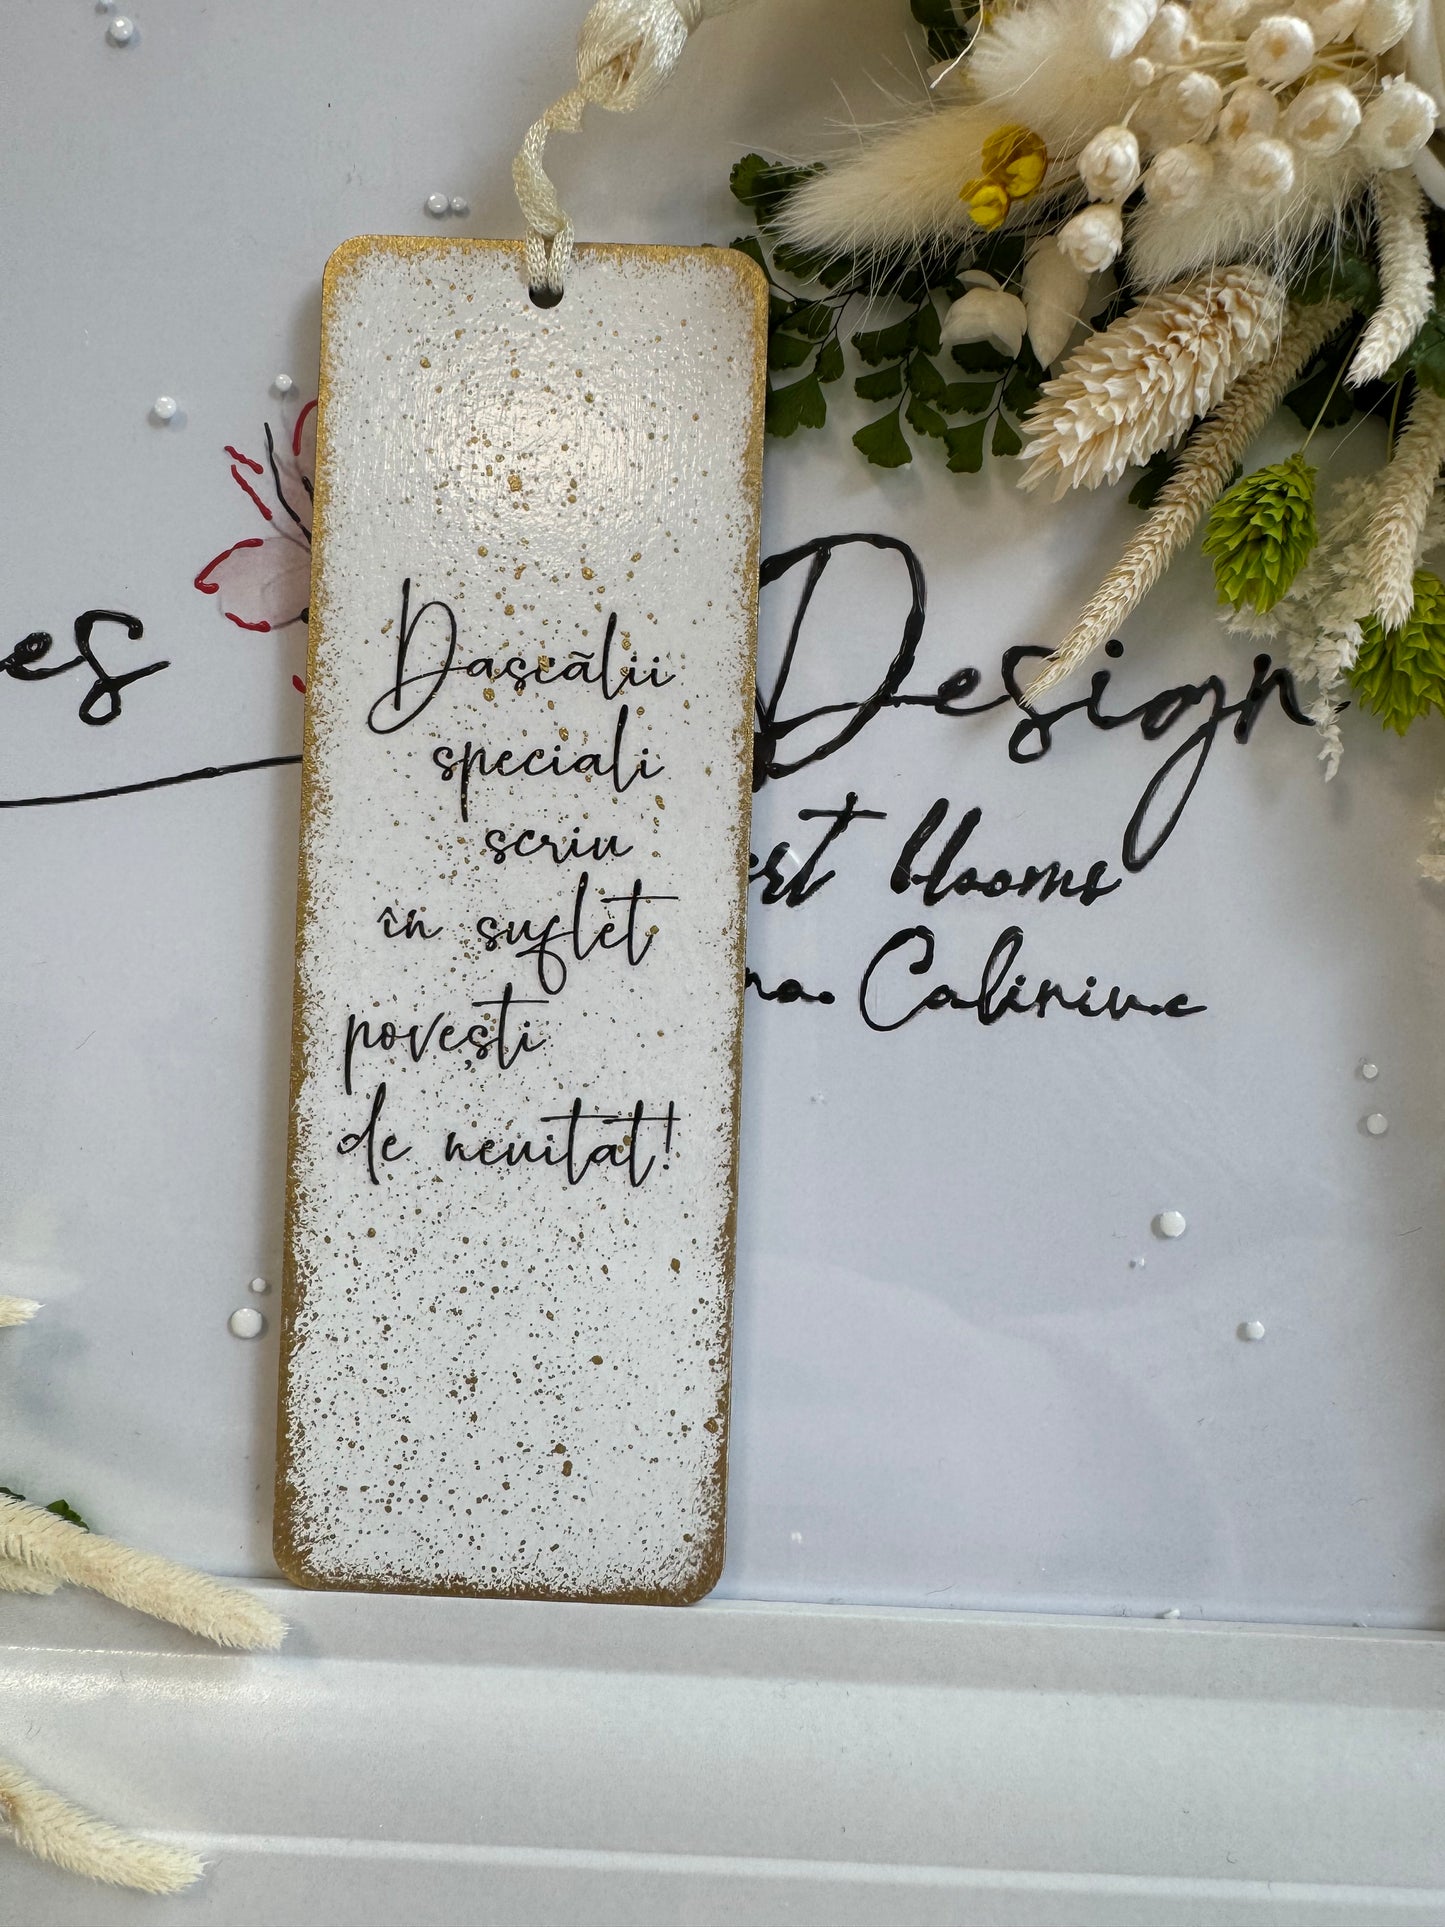 Dascãlii
speciali
scriu
în suflet
povești
de neuitat!
Design
blooms
Caliniuc